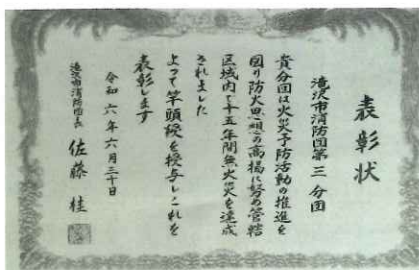 表彰状
滝沢市消防団第三分団
貴分団は火災予防活動の推進を
図り防火思想の高揚に努め管轄
区域内で十五年間無火災を達成
されました
よって竿頭綬を授与しこれを
表彰します
令和六年六月三十日
滝沢市消防団長 佐藤 桂